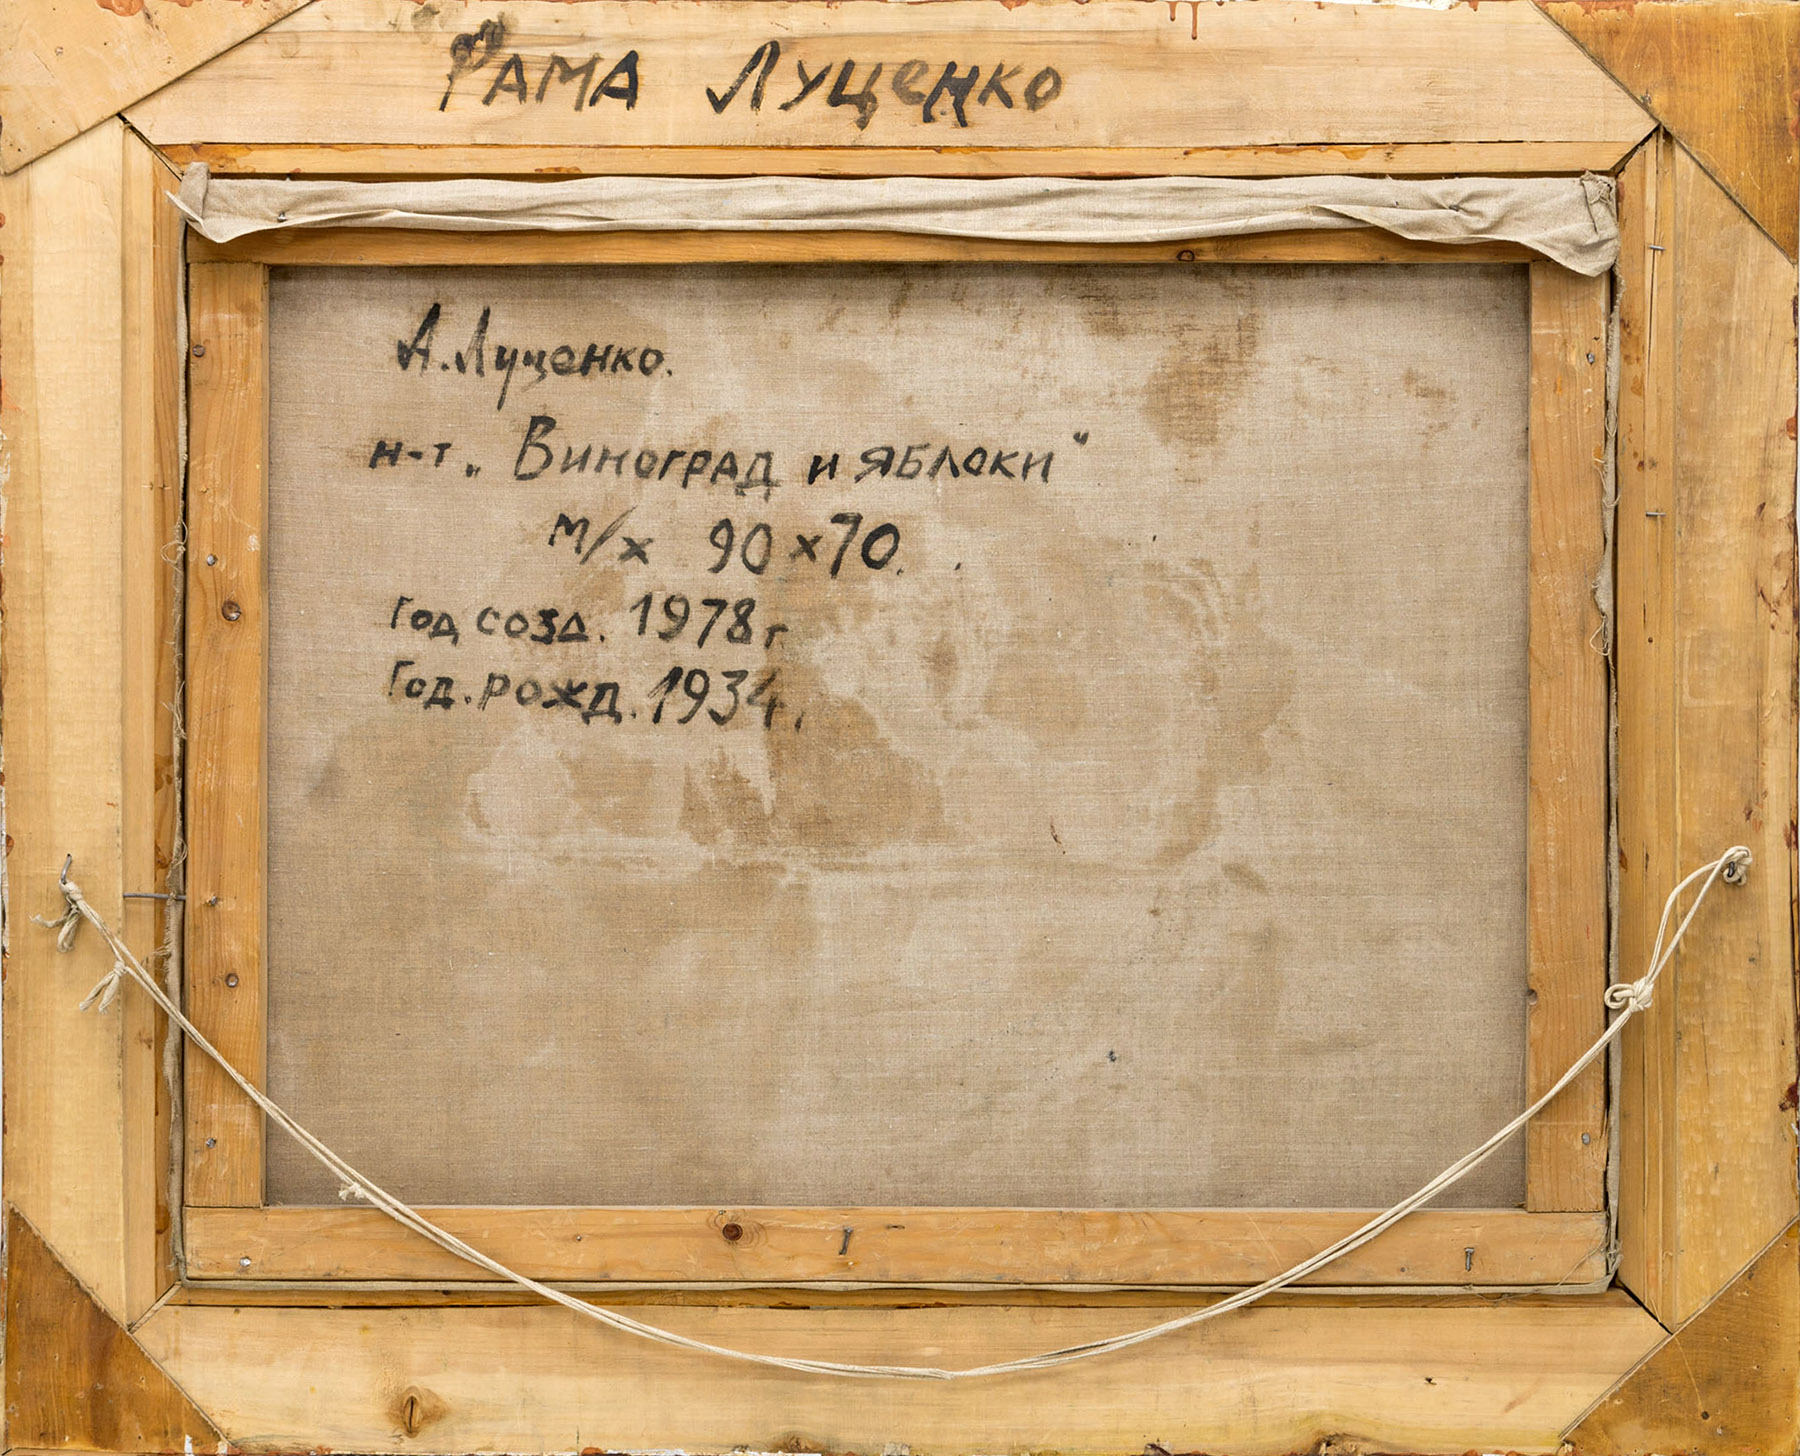 Рама Луценко
А. Луценко.
н-т „Виноград и яблоки“
м/х 90 х 70.
Год созд. 1978 г
Год. рожд. 1934.